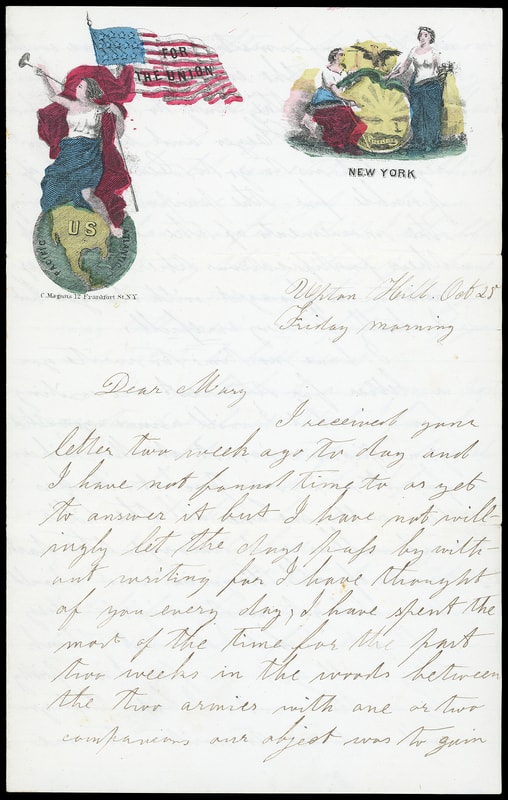 FOR
THE UNION
US
PACIFIC
ATLANTIC
C. Magnus 12 Frankfort St. N.Y.
EXCELSIOR
NEW YORK
Upton Hill. Oct 25
Friday morning
Dear Mary
I received your
letter two week ago to day and
I have not found time to as yet
to answer it but I have not will-
ingly let the days pass by with-
out writing for I have thought
of you every day, I have spent the
most of the time for the past
two weeks in the woods between
the two armies with one or two
companions our object was to gain